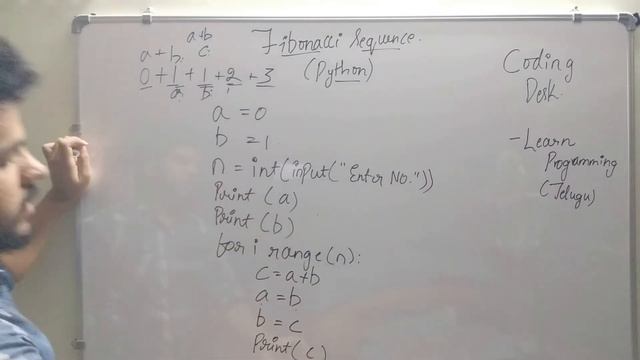 Fibonacci Sequence.
(Python)
a+b
a+b
c
0+1+1+2+3
a b
a=0
b=1
n=int(input("Enter No."))
Print(a)
Print(b)
for i range(n):
c=a+b
a=b
b=c
Print(c)
Coding
Desk.
-Learn
Programming
(Telugu)